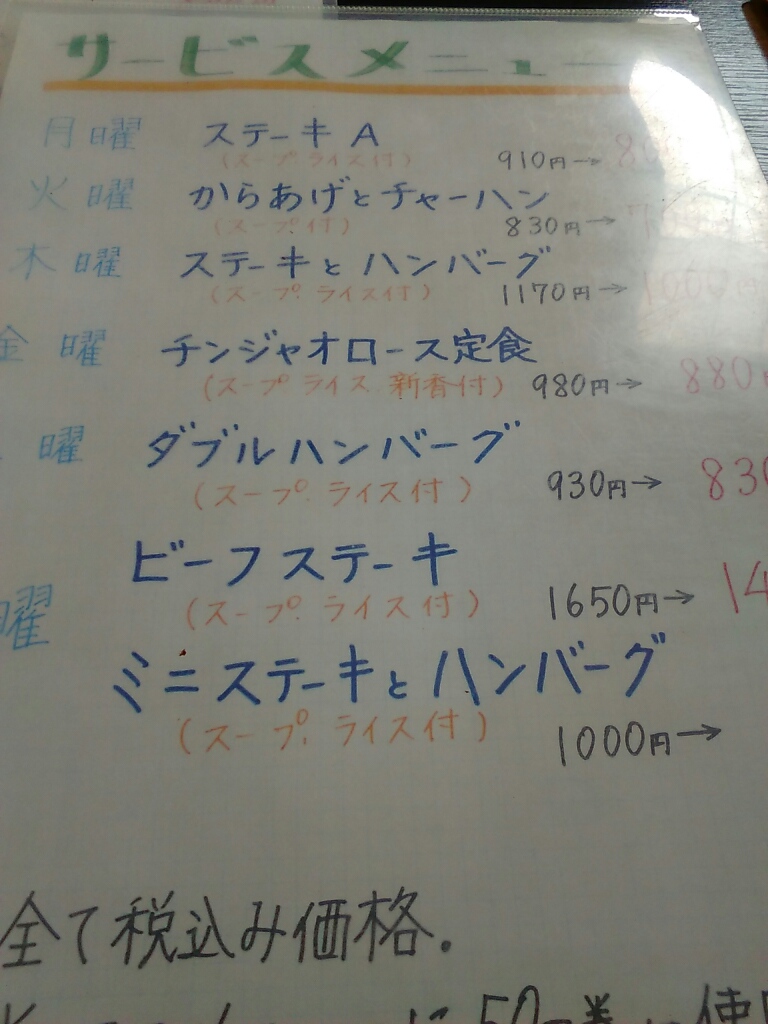 サービスメニュー
月曜 ステーキ A
(スープ.ライス付) 910円→
火曜 からあげとチャーハン
(スープ付) 830円→
木曜 ステーキと ハンバーグ
(スープ.ライス付) 1170円→ 1000
金曜 チンジャオロース定食
(スープ ライス 新香付) 980円→ 880
曜 ダブルハンバーグ
(スープ.ライス付) 930円→ 830
曜 ビーフステーキ
(スープ.ライス付) 1650円→ 14
ミニステーキと ハンバーグ
(スープ.ライス付) 1000円→
全て税込み価格.